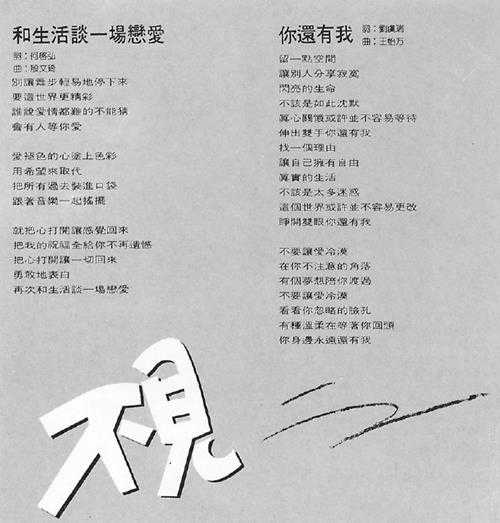 和生活談一場戀愛
詞:何啓弘
曲:殷文琦
別讓舞步輕易地停下來
要這世界更精彩
誰說愛情都難的不能猜
會有人等你愛
愛褪色的心塗上色彩
用希望來取代
把所有過去裝進口袋
跟著音樂一起搖擺
就把心打開讓感覺回來
把我的祝福全給你不再遺憾
把心打開讓一切回來
勇敢地表白
再次和生活談一場戀愛
你還有我
詞:劉虞瑞
曲:王怡方
留一點空間
讓別人分享寂寞
閃亮的生命
不該是如此沈默
真心關懷或許並不容易等待
伸出雙手你還有我
找一個理由
讓自己擁有自由
真實的生活
不該是太多迷惑
這個世界或許並不容易更改
睜開雙眼你還有我
不要讓愛冷漠
在你不注意的角落
有個夢想陪你渡過
不要讓愛冷漠
看看你忽略的臉孔
有種溫柔在等著你回頭
你身邊永遠還有我
不見